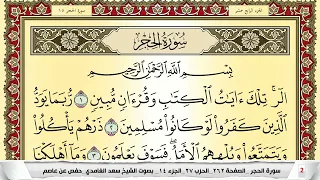 سورة الحجر ١٥
الجزء الرابع عشر
سُورَةُ الحِجْرِ
بِسْمِ اللَّهِ الرَّحْمَٰنِ الرَّحِيمِ
الٓر ۚ تِلْكَ ءَايَٰتُ الْكِتَٰبِ وَقُرْءَانٍ مُّبِينٍ ١ رُّبَمَا يَوَدُّ
الَّذِينَ كَفَرُوا۟ لَوْ كَانُوا۟ مُسْلِمِينَ ٢ ذَرْهُمْ يَأْكُلُوا۟
وَيَتَمَتَّعُوا۟ وَيُلْهِهِمُ الْأَمَلُ ۖ فَسَوْفَ يَعْلَمُونَ ٣ وَمَآ أَهْلَكْنَا
سورة الحجر . الصفحة ٢٦٢ . الحزب ٢٧ . الجزء ١٤ . بصوت الشيخ سعد الغامدي . حفص عن عاصم
2